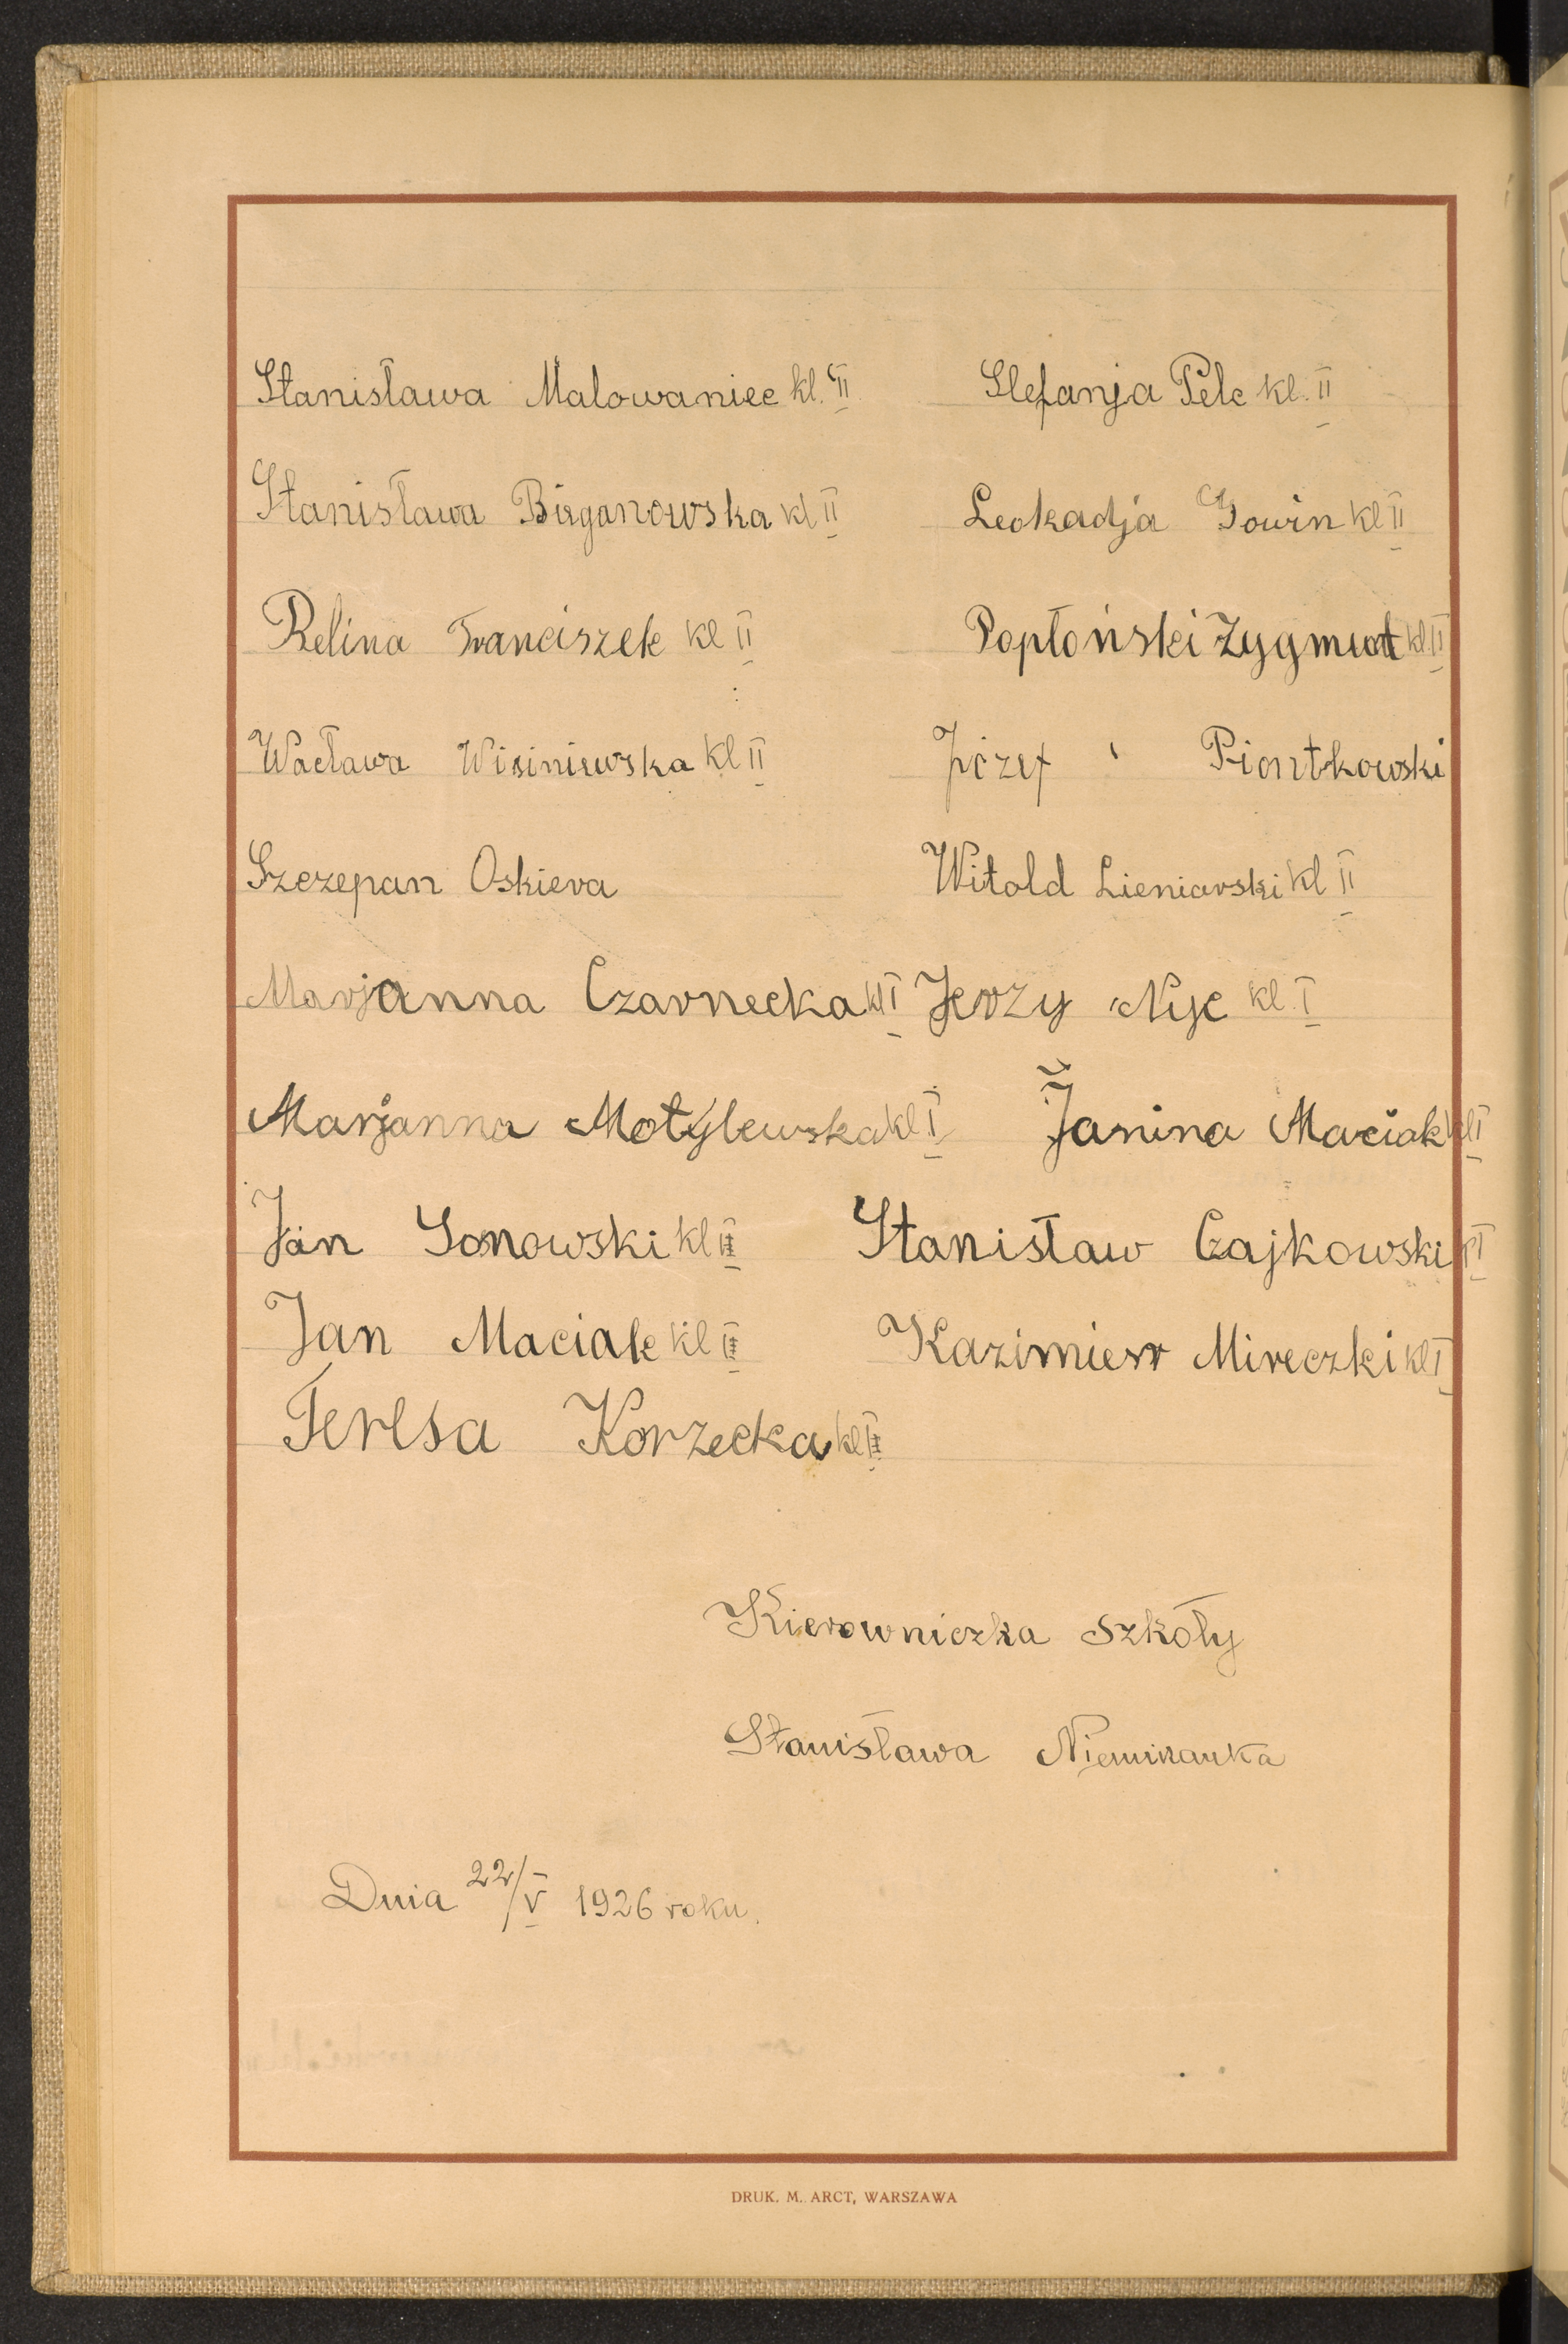 Stanisława Malowaniec kl. II Stefanja Pelc kl. II
Stanisława Bieganowska kl II Leokadja Gowin kl II
Relina Franciszek kl II Popłoński Zygmunt kl II
Wacława Wisiniewska kl II Józef Piontkowski
Szczepan Oskiera Witold Lieniarski kl II
Marjanna Czarnecka kl I Jerzy Nyc kl. I
Marjanna Motylewska kl I Janina Maciak kl I
Jan Sonowski kl II Stanisław Czajkowski kl I
Jan Maciak kl II Kazimierr Mireczki kl I
Teresa Korzecka kl II
Kierowniczka szkoły
Stanisława
Dnia 22/V 1926 roku.
DRUK. M. ARCT, WARSZAWA